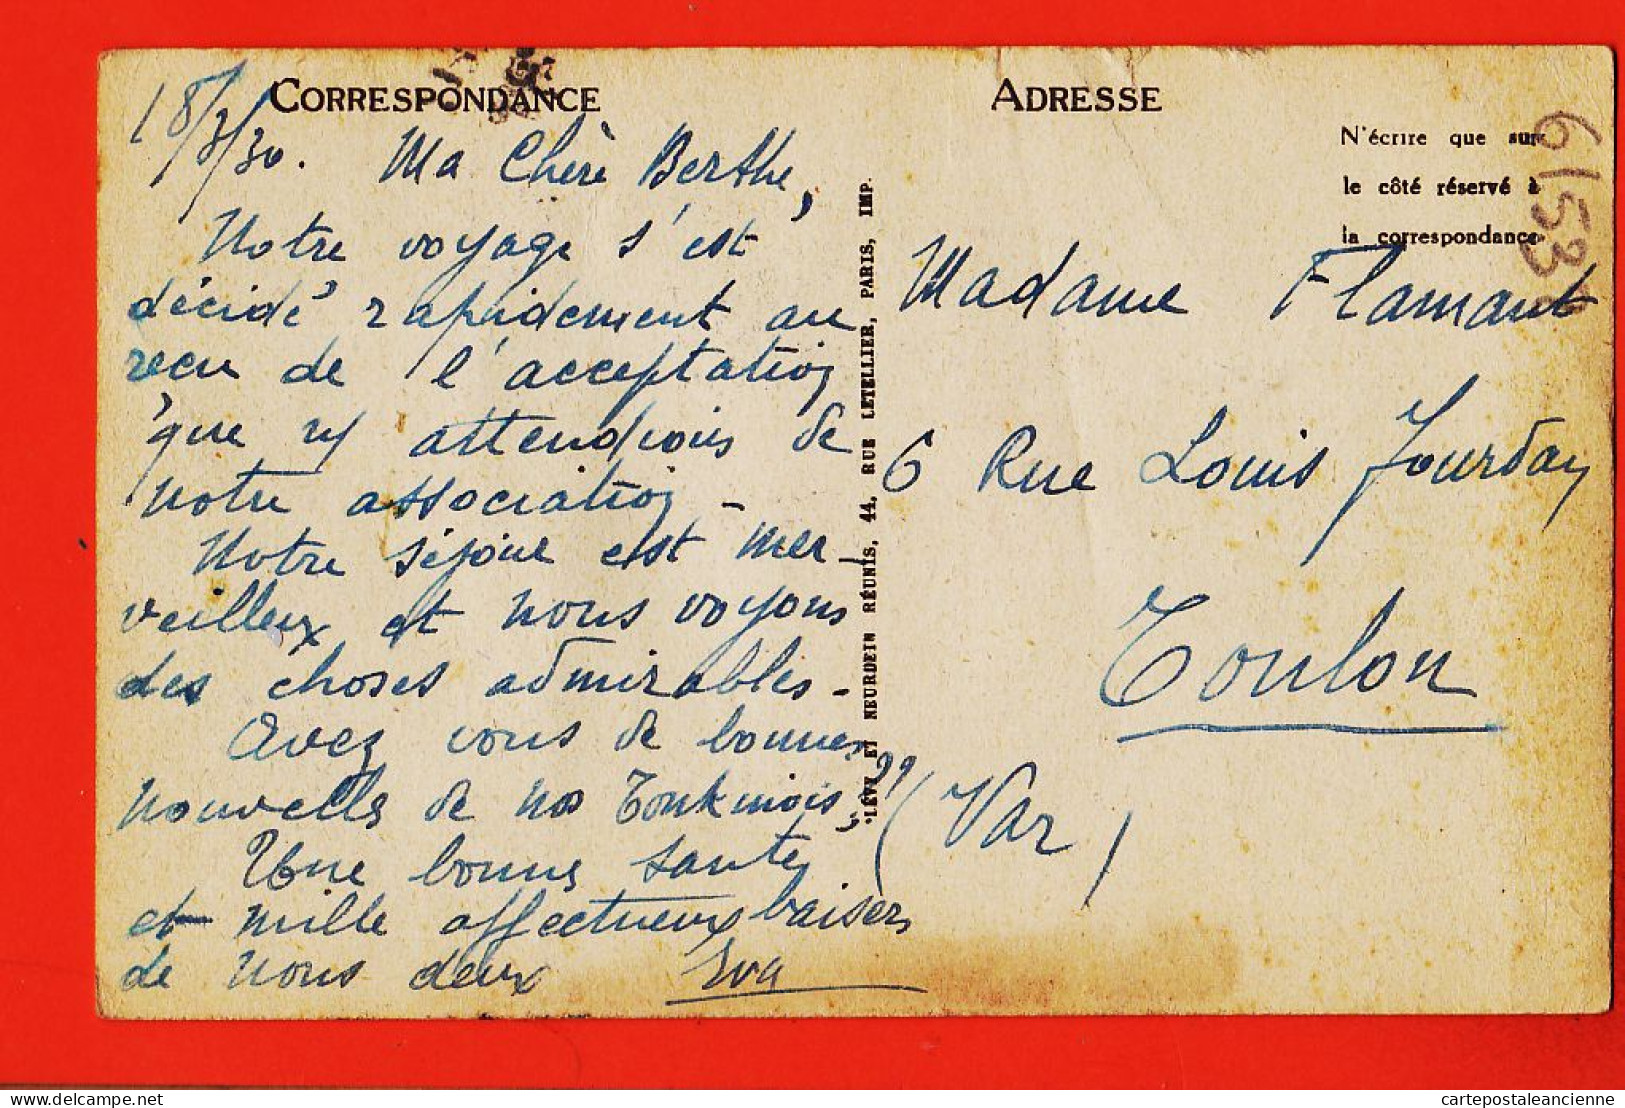 CORRESPONDANCE
18/3/30. Ma Chère Berthe,
Notre voyage s'est
décidé rapidement au
recu de l'acceptation
que ns attendions de
notre association -
Notre séjour est mer-
veilleux et nous voyons
des choses admirables -
Avez vous de bonnes
nouvelles de nos Tonkinois, ??
Une bonne santé
et mille affectueux baisers
de nous deux Eva
"LÉVY ET NEURDEIN RÉUNIS, 44, RUE LETELLIER, PARIS, IMP.
ADRESSE
N'écrire que sur
le côté réservé à
la correspondance
Madame Flamant
6 Rue Louis Jourdan
Toulon
(Var)
cartepostaleancienne.com
cartepostaleancienne